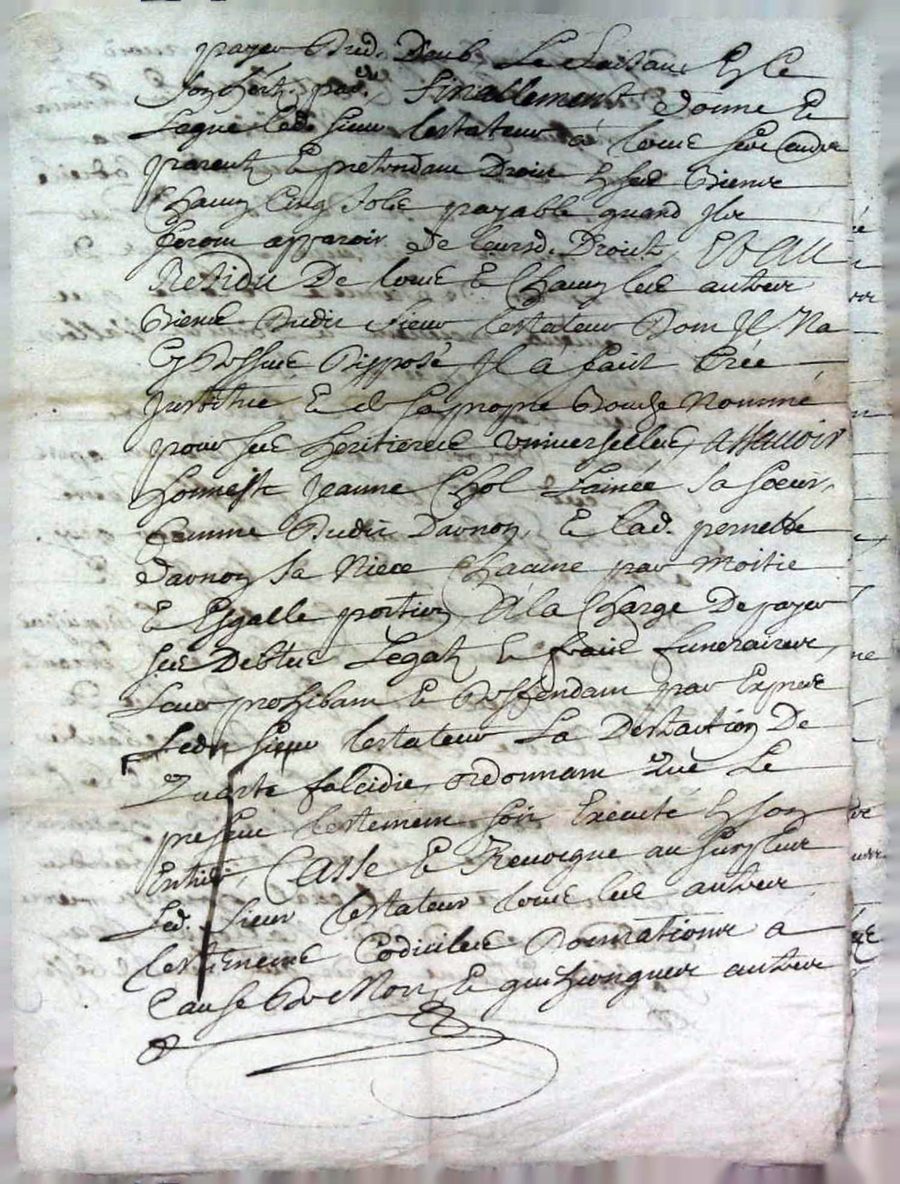 payer aud. Daub. Le Laissant Et Ce
son herit. par. Finallement donne Et
Legue led. sieur testateur a tous ses autre
parent Et pretendam Droit En ses Biens
Chacun Cinq Solz payable quand Ilz
feront apparoir de leursd. Droitz, Et Au
Residu De tous Et Chacun les autres
Biens Dudit sieur testateur Dont Il Na
Cy Dessus Disposé, Il a fait Crée
Institué Et de sa propre Bouche Nommé
pour ses heritieres universelles, assavoir
honneste Jeanne Chol Lainée sa soeur,
femme Dudit Davnon, Et lad. pernette
davnon sa Niece Chacune par Moitié
Et Esgalle portion, A la Charge De payer
ses Debtes Legatz Et fraiz funeraires,
Leur prohibant Et Deffendam par Expres
Ledit sieur testateur La Destraction De
Quarte falcidie, ordonnam Que Le
present testement soit Executé En son
Entier, Casse Et Revocque au surplus
Led. sieur testateur tous les autres
testements, Codicilles Donnations a
Cause De Mort, Et quelzconques autres